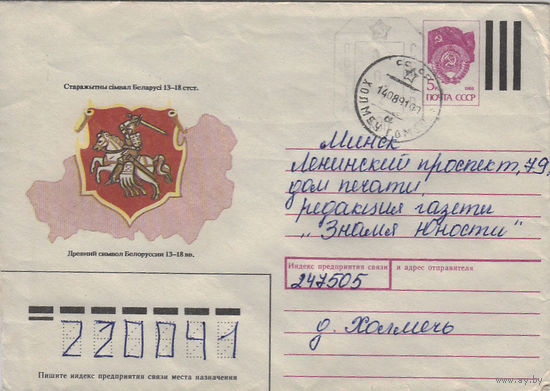 Старажытны сімвал Беларусі 13–18 стст.
Древний символ Белоруссии 13–18 вв.
5к
1988
ПОЧТА СССР
140891
Минск
Ленинский проспект, 79,
дом печати,
редакция газеты
„Знамя Юности"
Индекс предприятия связи и адрес отправителя
247505
д. Холмечь
220041
Пишите индекс предприятия связи места назначения
www.ay.by